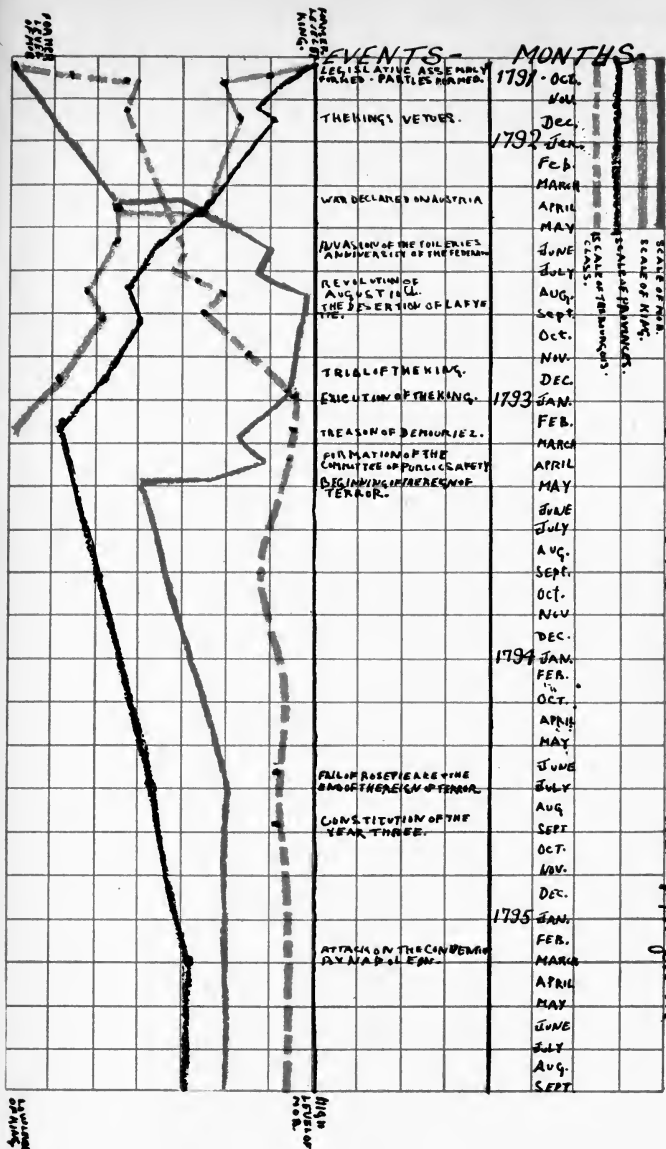 FORMER
LEVEL
OF MOB
FORMER
LEVEL OF
KING.
EVENTS-
MONTHS-
LEGISLATIVE ASSEMBLY
FORMED - PARTIES FORMED.
THE KINGS VETOES.
WAR DECLARED ON AUSTRIA
INVASION OF THE TUILERIES
ANNIVERSITY OF THE
REVOLUTION OF
AUGUST 10
THE DESERTION OF LAFYE
TTE.
TRIAL OF THE KING.
EXICUTION OF THE KING.
TREASON OF DEMOURIEZ.
FORMATION OF THE
COMMITTEE OF PUBLIC SAFETY
BEGINNING OF THE REGN OF
TERROR.
FALL OF ROSEPIERRE + THE
END OF THE REIGN OF TERROR
CONSTITUTION OF THE
YEAR THREE.
ATTACK ON THE
BY NAPOLEON.
1791 - OCT.
NOV
DEC.
1792 JAN.
FEB.
MARCH
APRIL
MAY
JUNE
JULY
AUG.
SEPT.
OCT.
NOV.
DEC.
1793 JAN.
FEB.
MARCH
APRIL
MAY
JUNE
JULY
AUG.
SEPT.
OCT.
NOV
DEC.
1794 JAN.
FEB.
OCT.
APRIL
MAY
JUNE
JULY
AUG
SEPT
OCT.
NOV.
DEC.
1795 JAN.
FEB.
MARCH
APRIL
MAY
JUNE
JULY
AUG.
SEPT
SCALE OF MOB.
SCALE OF KING.
SCALE OF PROVINCES.
SCALE OF THE BOURGOIS.
CLASS.
OF KING.
HIGH
LEVEL OF
MOB.